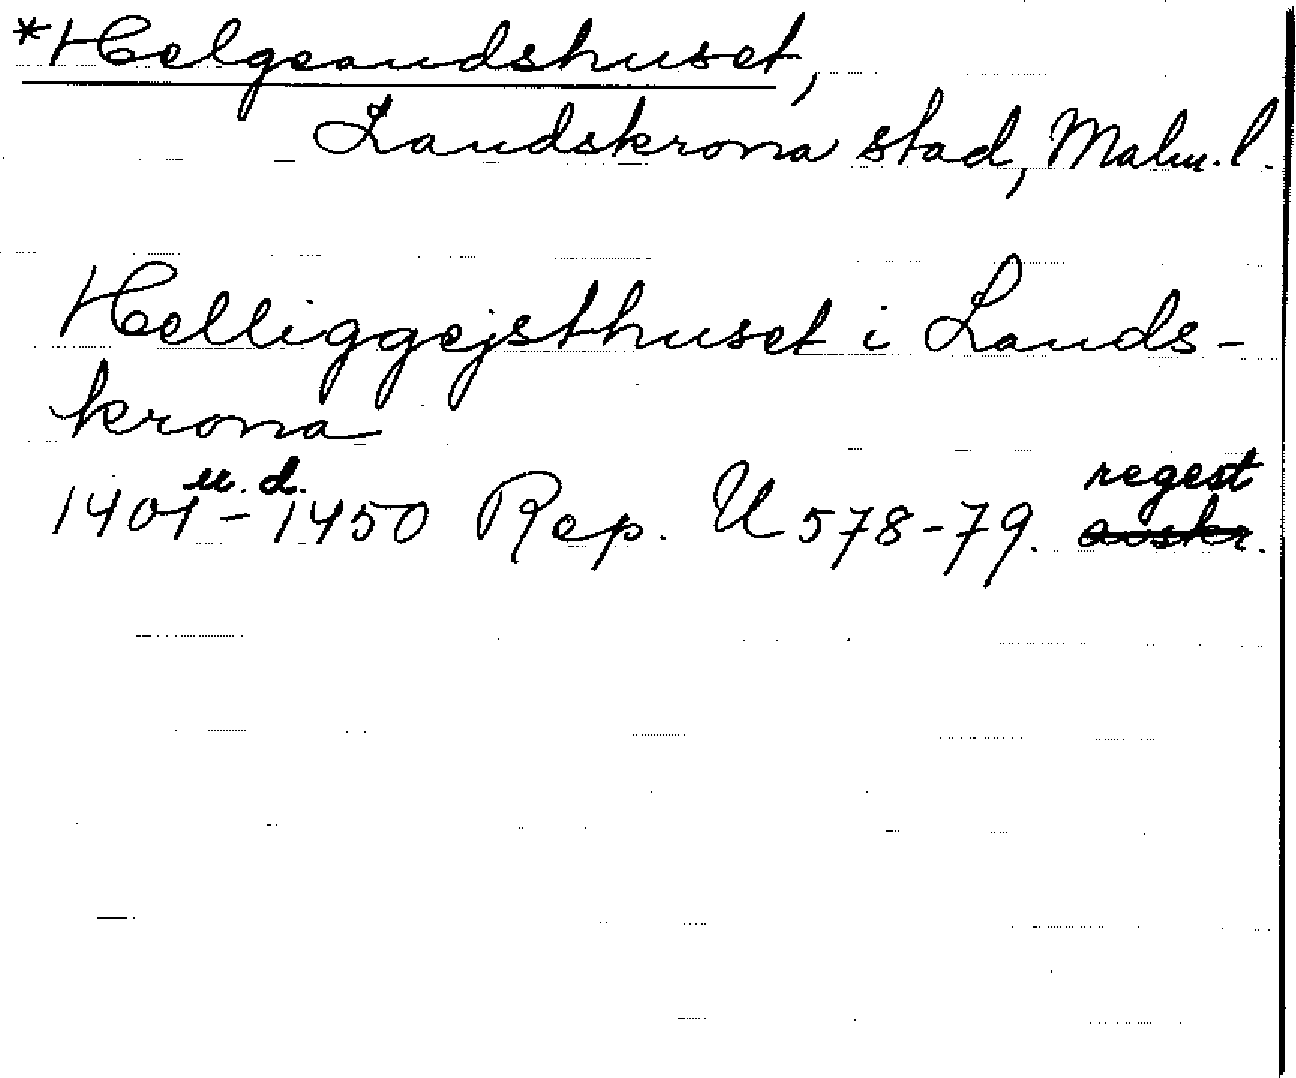 *Helgeandshuset,
Landskrona stad, Malm. l.
Helliggejsthuset i Lands-
krona
u. d. regest
1401-1450 Rep. U 578-79. avskr.